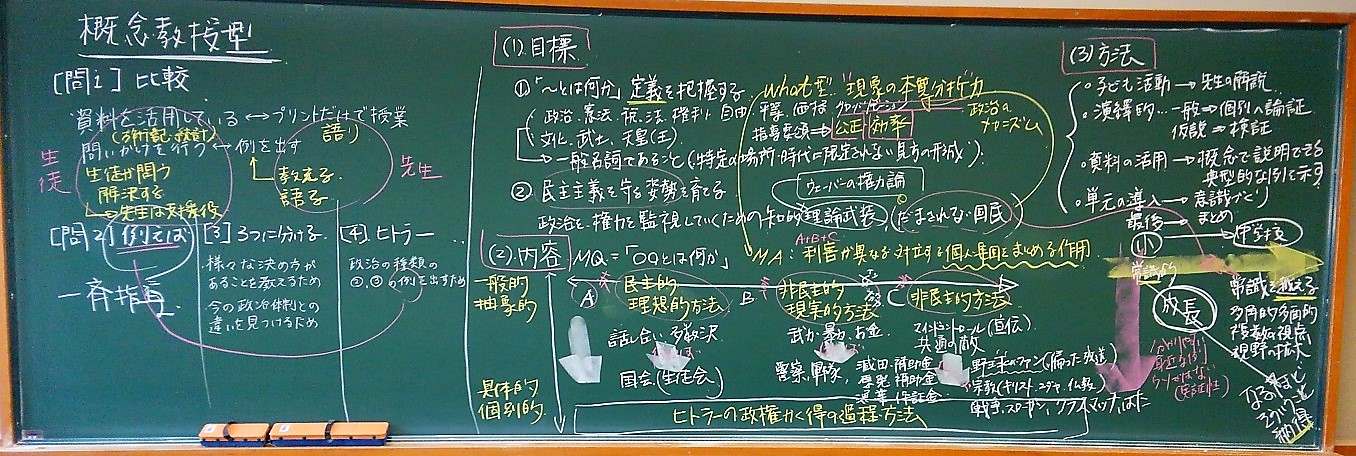 概念教授型
[問1] 比較
資料を活用している ↔ プリントだけで授業
問いかけを行う ↔ 例を出す
語り
生徒
生徒が問う
解決する
教える
語る
先生
[問2] 例えば
一斉指導
[3] 3つに分ける
様々な決め方が
あることを教えるため
今の政治体制との
違いを見つけるため
[4] ヒトラー
政治の種類の
②、③の例を出すため
(1). 目標
①「〜とは何か」定義を把握する
what型 "現象の本質分析"力
文化、武士、天皇(王)
指導要領→ 公正 効率
政治の
→一般名詞であること(特定の場所・時代に限定されない見方の形成)
②民主主義を守る姿勢を育てる
ウェーバーの権力論
政治を、権力を監視していくための知的理論武装、(だまされない国民)
(2). 内容 MQ=「○○とは何か」
A+B+C
MA: 利害が異なる対立する個人・集団をまとめる作用
一般的
抽象的
A 民主的
理想的方法
B 非民主的
現実的方法
C 非民主的方法
話し合い、多数決
国会(生徒会)
武力、暴力、お金
警察、軍隊、
減田・補助金
マインドコントロール(宣伝)
共通の敵
野球ファン
宗教(キリスト、ユダヤ、仏教)
具体的
個別的
ヒトラーの政権かく得の過程・方法
(3) 方法
○子ども活動 → 先生の解説
○演繹的… 一般⇒個別へ論証
仮説⇒検証
○資料の活用 → 概念で説明できる
典型的な例を示す
○単元の導入 → 意識づくり
最後 → まとめ
小
常識的
成長
常識を超える
多角的多面的
複数の視点
視野の拡大
納得